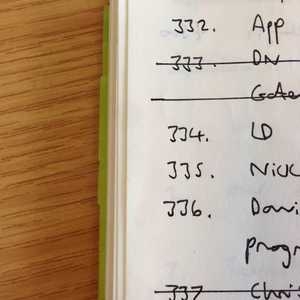 332. App
333. DN
Gate
334. LD
335. Nick
336. Davi
progr
337 Chris